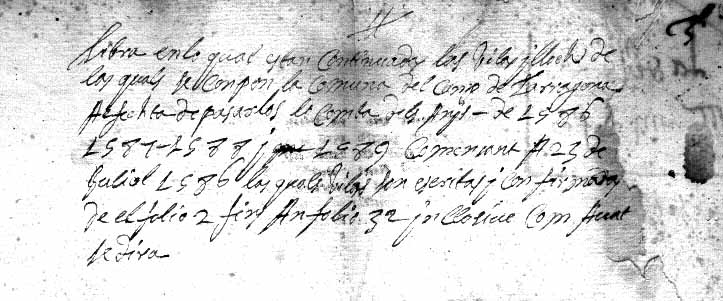 Llibra en lo qual estan Continuades las Vilas y llochs de
los quals se Conpon la Comuna del Camp de Tarragona
de pasarlos lo Compta dels Anys - de 1586
1587 - 1588 j 1589 Comensant A 23 de
Juliol 1586 los quals Vilas son escritas j Confirmades
de el folio 2 fins An folio 32 jnClosiue Com
se dira